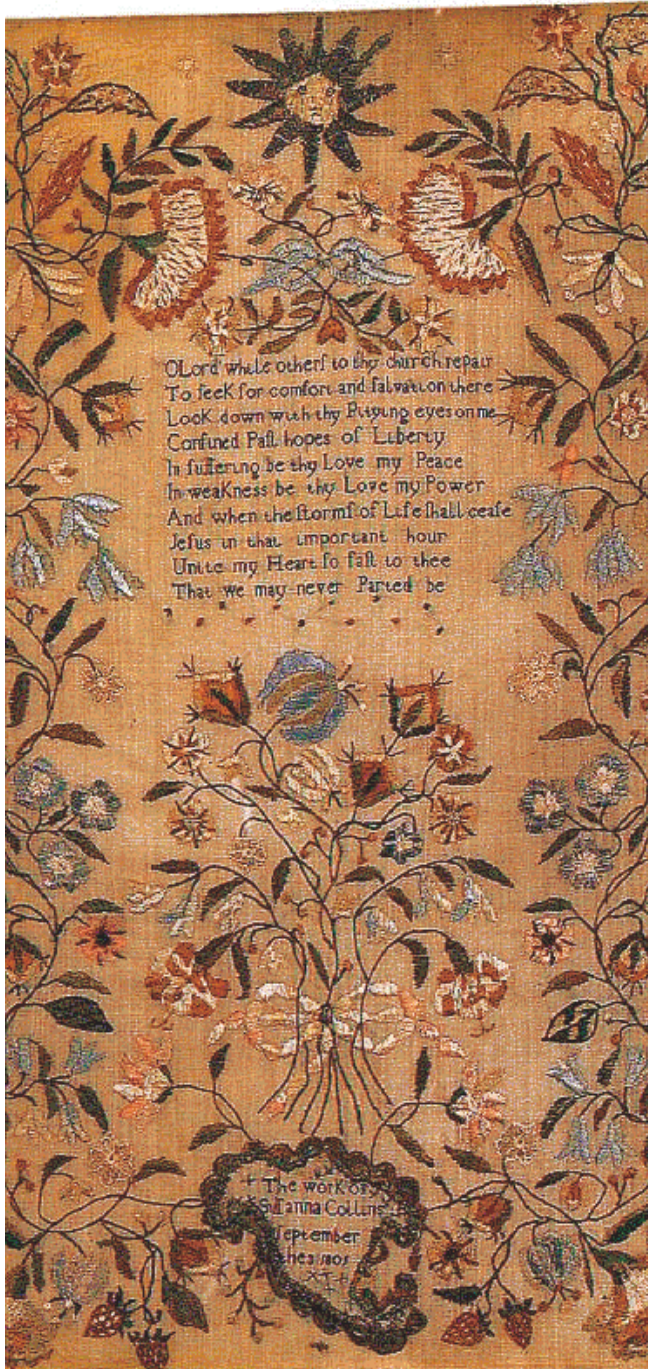 O Lord while otherſ to thy church repair
To ſeek for comfort and ſalvation there
Look down with thy Pitying eyes on me
Confined Paſt hopes of Liberty
In ſuffering be thy Love my Peace
In weakness be thy Love my Power
And when the ſtormſ of Life ſhall ceaſe
Jeſus in that important hour
Unite my Heart ſo faſt to thee
That we may never Parted be
The work of
Suſanna Collins
September
the